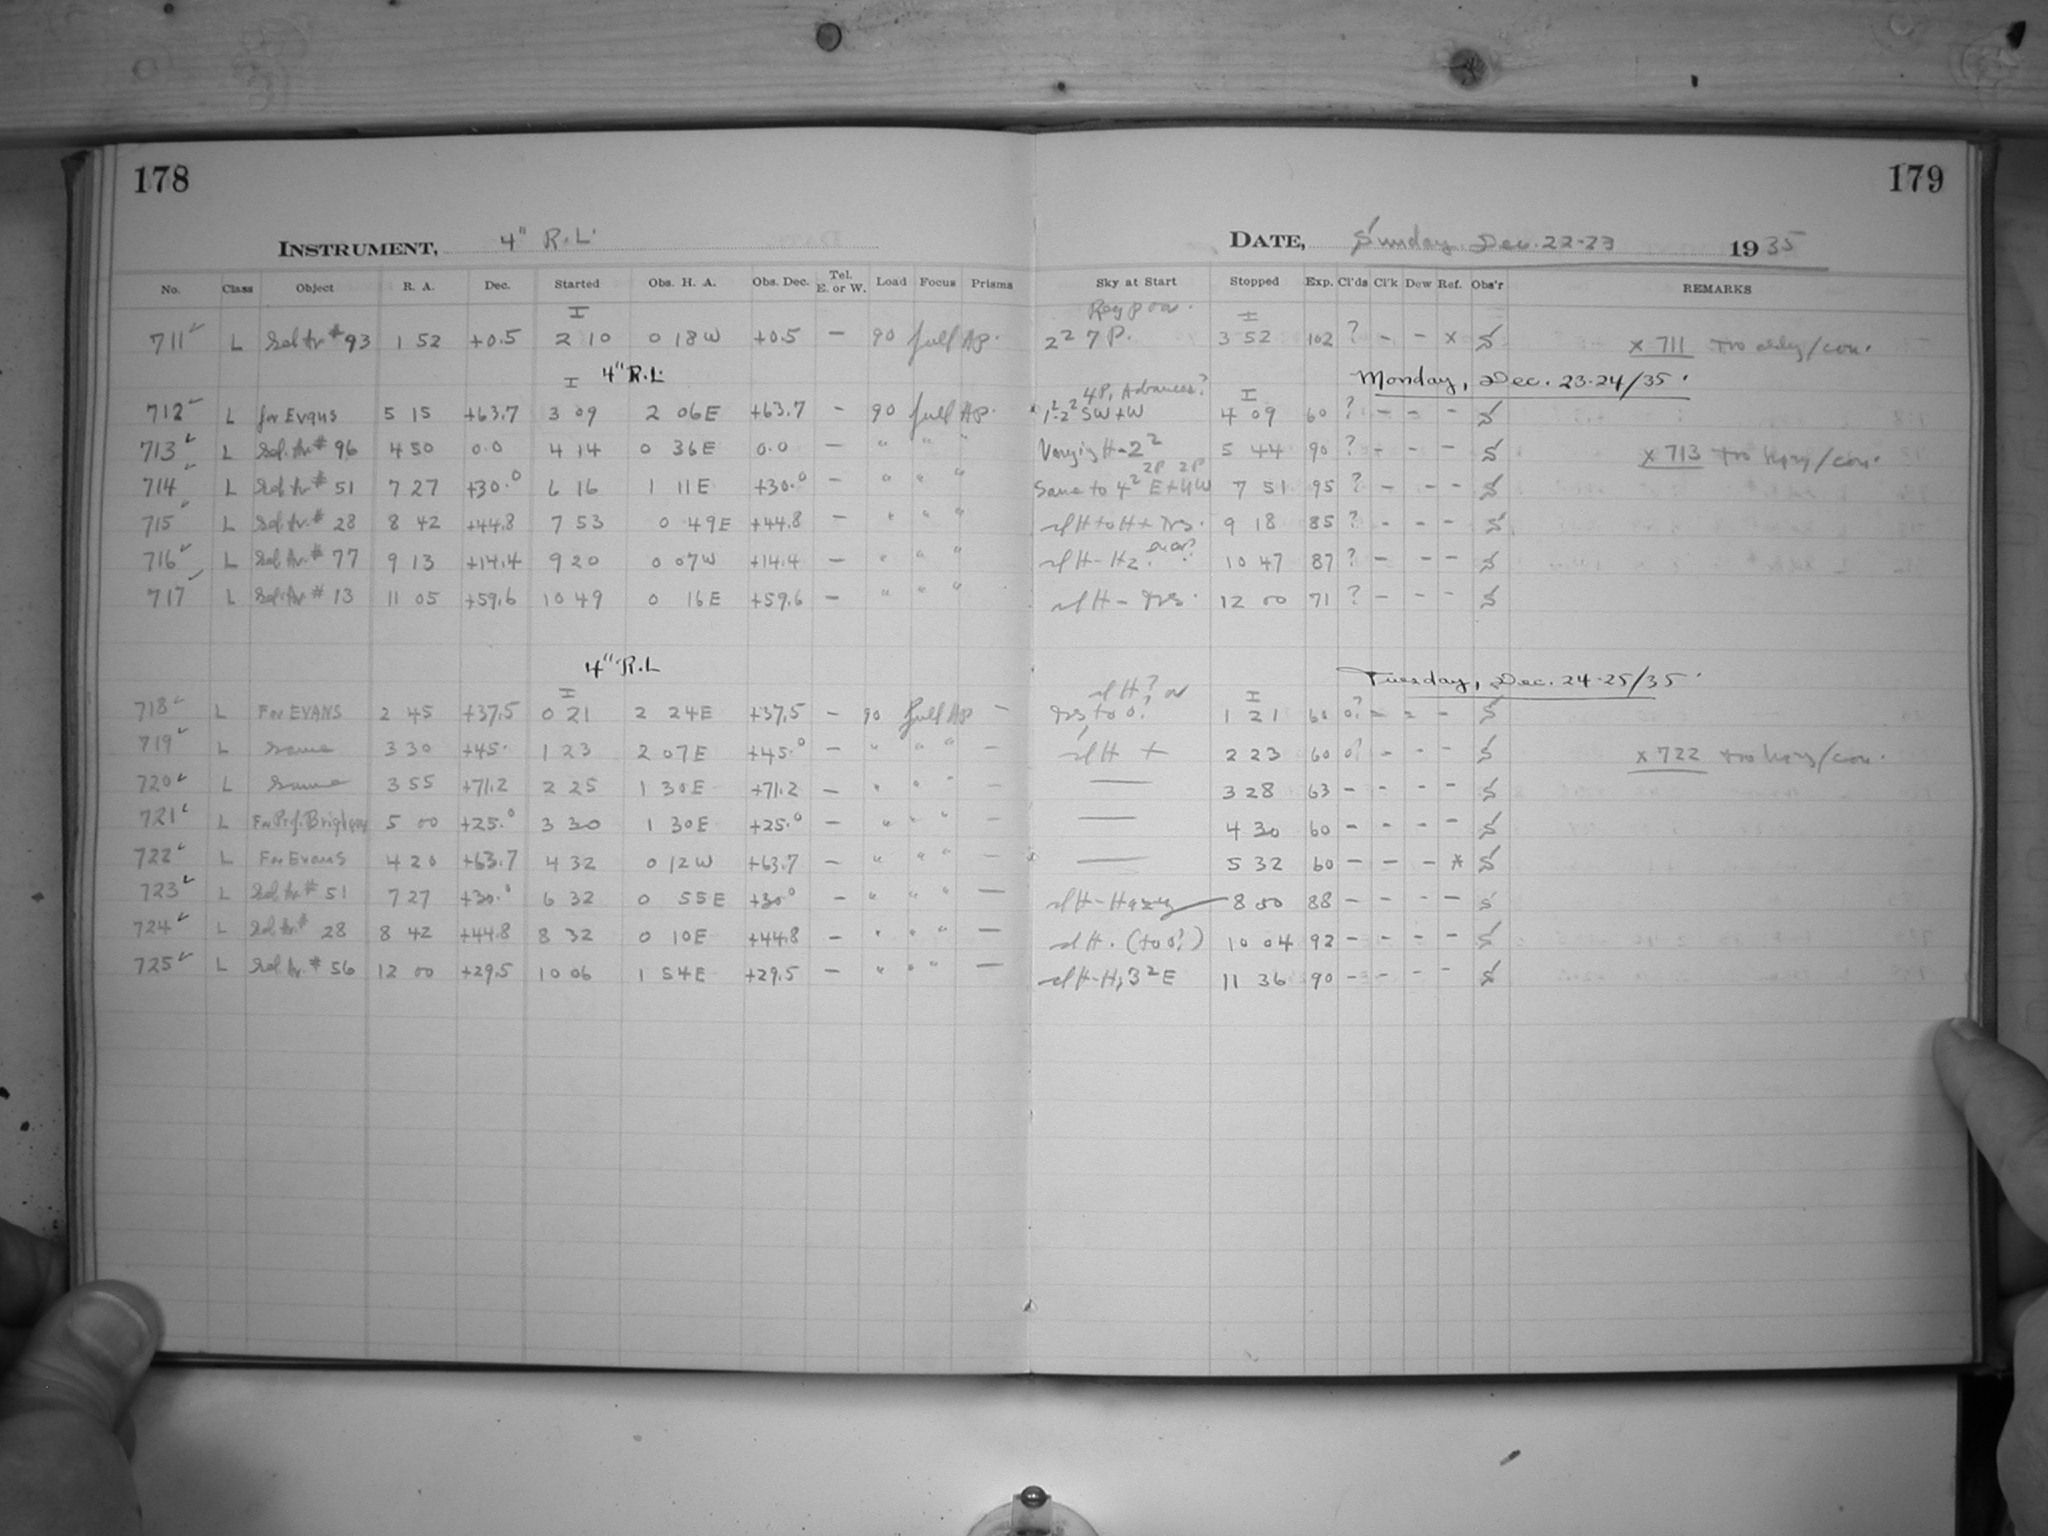 178
179
INSTRUMENT, 4" R.L. DATE, Sunday, Dec. 22-23 1935
No. Class Object R. A. Dec. Started Obs. H. A. Obs. Dec. Tel. E. or W. Load Focus Prisms Sky at Start Stopped Exp. Cl'ds Cl'k Dew Ref. Obs'r REMARKS
I I
711 ✓ L Sel Ar # 93 1 52 +0.5 2 10 0 18W +0.5 – 90 full Ap. 2² 7P. 3 52 102 ? – – x S x 711
4" R.L. Monday, Dec. 23-24/35.
I 4P, Advances? I
712 ✓ L for Evans 5 15 +63.7 3 09 2 06E +63.7 – 90 full Ap. 1²-2² SW+W 4 09 60 ? – – – S
713 ✓ L Sel. Ar # 96 4 50 0.0 4 14 0 36E 0.0 – " " " Varying H-2² 5 44 90 ? – – – S x 713
2P 2P
714 ✓ L Sel Ar # 51 7 27 +30.⁰ 6 16 1 11E +30.⁰ – " " " Same to 4² E+4W 7 51 95 ? – – – S
715 ✓ L Sel Ar. # 28 8 42 +44.8 7 53 0 49E +44.8 – " " " 9 18 85 ? – – – S
716 ✓ L Sel Ar. # 77 9 13 +14.4 9 20 0 07W +14.4 – " " " sl H-Hz. 10 47 87 ? – – – S
717 ✓ L Sel. Ar # 13 11 05 +59.6 10 49 0 16E +59.6 – " " " 12 00 71 ? – – – S
4" R.L Tuesday, Dec. 24-25/35.
I sl H? or I
718 ✓ L For EVANS 2 45 +37.5 0 21 2 24E +37.5 – 90 full Ap – to 0? 1 21 60 0? – – – S
719 ✓ L Same 3 30 +45. 1 23 2 07E +45.⁰ – " " " – sl H + 2 23 60 0? – – – S x 722
720 ✓ L Same 3 55 +71.2 2 25 1 30E +71.2 – " " " – — 3 28 63 – – – – S
721 ✓ L For Prof. 5 00 +25.⁰ 3 30 1 30E +25.⁰ – " " " – — 4 30 60 – – – – S
722 ✓ L For Evans 4 20 +63.7 4 32 0 12W +63.7 – " " " – — 5 32 60 – – – * S
723 ✓ L Sel Ar # 51 7 27 +30.⁰ 6 32 0 55E +30⁰ – " " " – sl H-Hazy 8 00 88 – – – – S
724 ✓ L Sel Ar. # 28 8 42 +44.8 8 32 0 10E +44.8 – " " " – sl H. (to 0?) 10 04 92 – – – – S
725 ✓ L Sel Ar. # 56 12 00 +29.5 10 06 1 54E +29.5 – " " " – sl H-H, 3² E 11 36 90 – – – – S